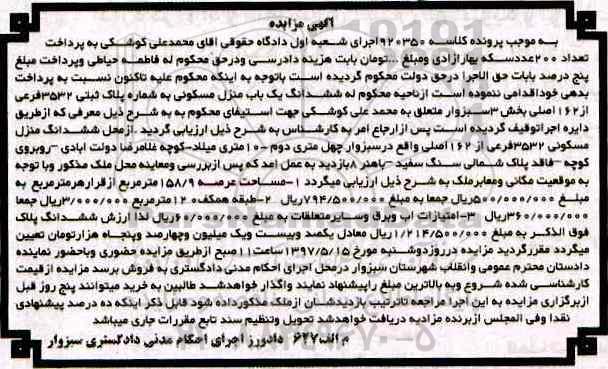 آگهی مزایده
به موجب پرونده کلاسه ۹۲۰۳۵۰ اجرای شعبه اول دادگاه حقوقی آقای محمدعلی کوشکی به پرداخت
تعداد ۲۰۰ عددسکه بهارآزادی ومبلغ ...تومان بابت هزینه دادرسی ودرحق محکوم له فاطمه حیاطی وپرداخت مبلغ
پنج درصد بابت حق الاجرا درحق دولت محکوم گردیده است باتوجه به اینکه محکوم علیه تاکنون نسبت به پرداخت
بدهی خوداقدامی ننموده است ازناحیه محکوم له ششدانگ یک باب منزل مسکونی به شماره پلاک ثبتی ۳۵۳۲فرعی
از۱۶۲اصلی بخش ۳سبزوار متعلق به محمد علی کوشکی جهت استیفای محکوم به به شرح ذیل معرفی که ازطریق
دایره اجراتوقیف گردیده است پس ازارجاع امر به کارشناس به شرح ذیل ارزیابی گردید .ازمحل ششدانگ منزل
مسکونی ۳۵۳۲فرعی از ۱۶۲اصلی واقع درسبزوار چهل متری دوم -۱۰متری میلاد-کوچه غلامرضا دولت آبادی -روبروی
کوچه -فاقد پلاک شمالی سنگ سفید -باهنر ۸بازدید به عمل آمد که پس ازبررسی ومعاینه محل ملک مذکور وبا توجه
به موقعیت مکانی ومعابرملک به شرح ذیل ارزیابی میگردد ۱-مساحت عرصه ۱۵۸/۹مترمربع ازقرارهرمترمربع به
مبلغ ۵۰۰۰/۰۰۰ریال جمعا به مبلغ ۷۹۴/۵۰۰/۰۰۰ریال ۲-طبقه همکف ۱۲۰مترمربع ۳/۰۰۰/۰۰۰ریال جمعا
۳۶۰/۰۰۰/۰۰۰ریال ۳-امتیازات آب وبرق وسایرمتعلقات به مبلغ ۶۰/۰۰۰/۰۰۰ریال لذا ارزش ششدانگ پلاک
فوق الذکر به مبلغ ۱/۲۱۴/۵۰۰/۰۰۰ریال معادل یکصد وبیست ویک میلیون وچهارصد وپنجاه هزارتومان تعیین
میگردد مقررگردید مزایده درروزدوشنبه مورخ ۱۳۹۷/۵/۱۵ساعت۱۱صبح ازطریق مزایده حضوری وباحضور نماینده
دادستان محترم عمومی وانقلاب شهرستان سبزوار درمحل اجرای احکام مدنی دادگستری به فروش برسد مزایده ازقیمت
کارشناسی شده شروع وبه بالاترین مبلغ راپیشنهاد نمایند واگذار خواهدشد طالبین به خرید میتوانند پنج روز قبل
ازبرگزاری مزایده به این اجرا مراجعه تاترتیب بازدیدشان ازملک مذکورداده شود قابل ذکر اینکه ده درصد پیشنهادی
نقدا وفی المجلس ازبرنده مزایده دریافت خواهدشد تحویل وتنظیم سند تابع مقررات جاری میباشد
م الف۶۴۷ دادورز اجرای احکام مدنی دادگستری سبزوار